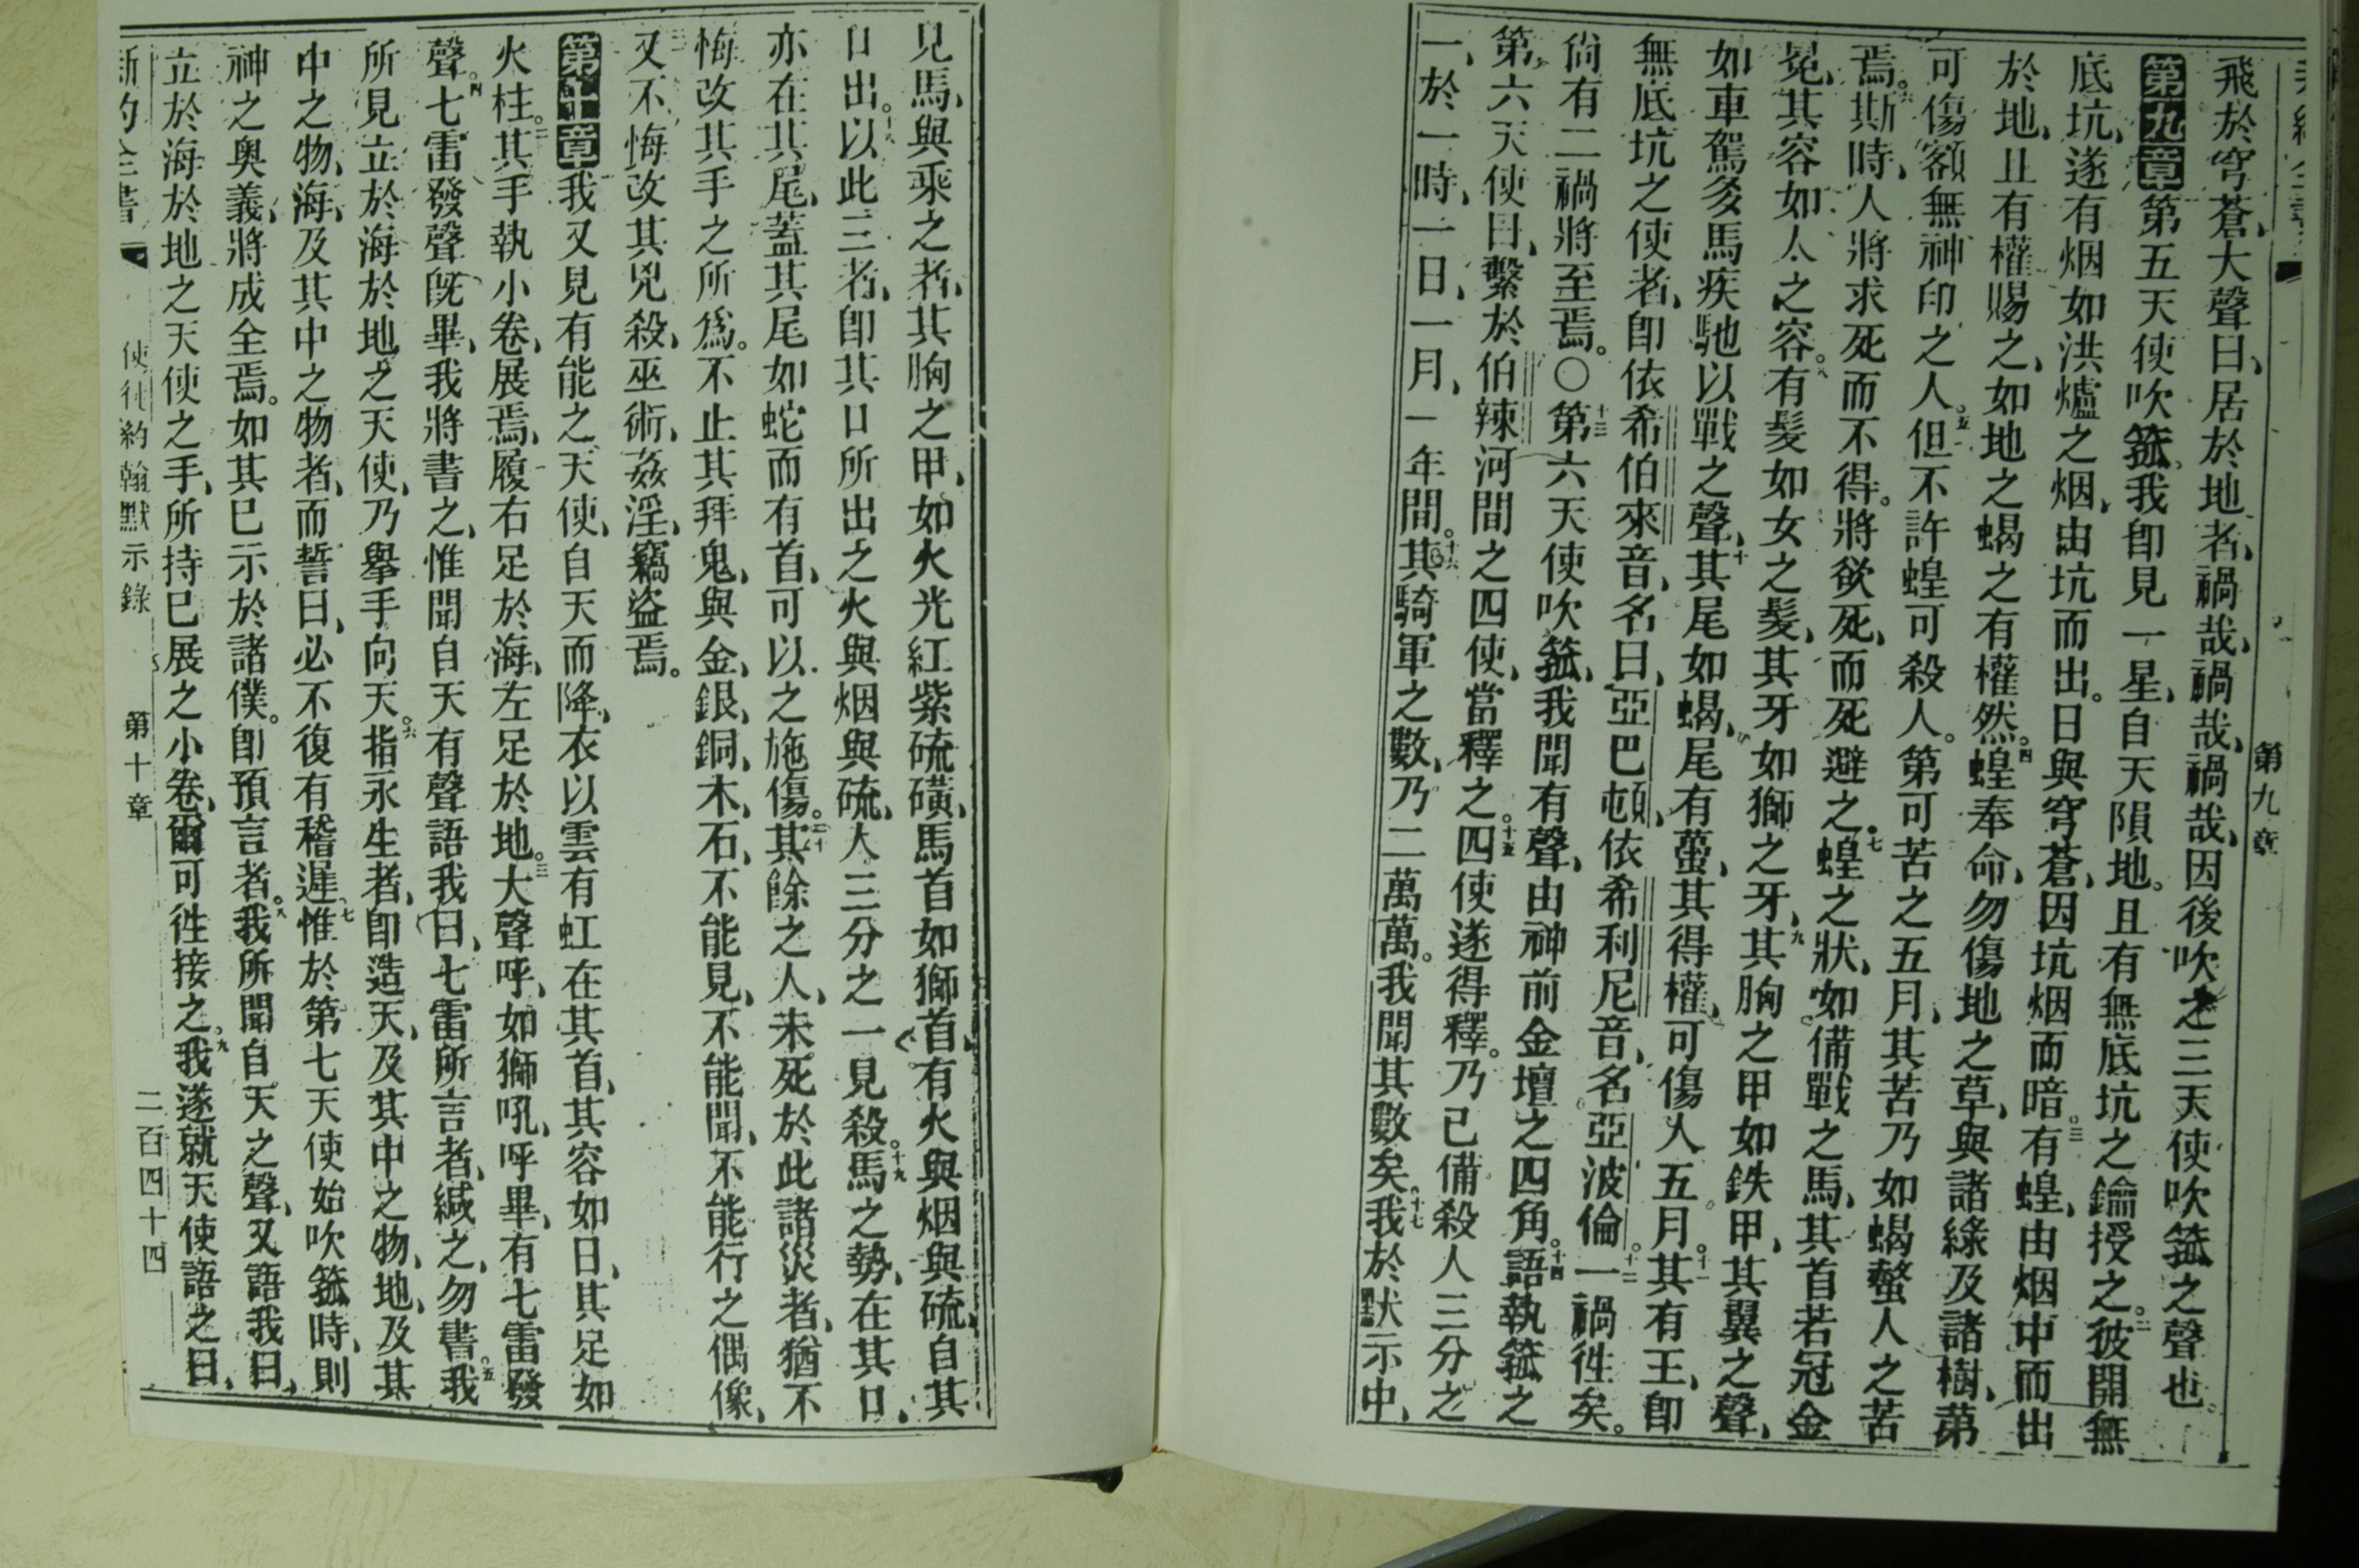 第九章
飛於穹蒼、大聲曰、居於地者、禍哉、禍哉、禍哉、因後吹之三天使吹箛之聲也。
第九章第五天使吹箛、我卽見一星、自天隕地。且有無底坑之鑰授之。二彼開無
底坑、遂有烟如洪爐之烟、由坑而出。日與穹蒼、因坑烟而暗。三有蝗、由烟中而出
於地、且有權賜之、如地之蝎之有權然。四蝗奉命、勿傷地之草、與諸綠及諸樹、第
可傷額無神印之人。五但不許蝗可殺人。第可苦之五月、其苦乃如蝎螫人之苦
焉。六斯時、人將求死而不得。將欲死、而死避之。七蝗之狀、如備戰之馬、其首若冠金
冕、其容如人之容。八有髮如女之髮、其牙如獅之牙、九其胸之甲如鉄甲、其翼之聲、
如車駕多馬疾馳以戰之聲、十其尾如蝎、尾有蠆、其得權、可傷人五月。十一其有王、卽
無底坑之使者、卽依希伯來音、名曰、亞巴頓、依希利尼音、名亞波倫。十二一禍徃矣。
尙有二禍將至焉。〇十三第六天使吹箛、我聞有聲、由神前金壇之四角。十四語執箛之
第六天使曰、繫於伯辣河間之四使、當釋之。十五四使遂得釋。乃已備殺人三分之
一、於一時、一日、一月、一年間。十六其騎軍之數、乃二萬萬。我聞其數矣。十七我於狀示中、
見馬、與乘之者、其胸之甲、如火光紅紫硫磺、馬首如獅首、有火與烟與硫、自其
口出。十八以此三者、卽其口所出之火與烟與硫、人三分之一見殺。十九馬之勢、在其口、
亦在其尾、蓋其尾如蛇而有首、可以之施傷。二十其餘之人、未死於此諸災者、猶不
悔改其手之所爲。不止其拜鬼、與金、銀、銅、木、石、不能見、不能聞、不能行之偶像、
又不悔改其兇殺、巫術、姦淫、竊盜焉。
第十章我又見有能之天使、自天而降、衣以雲有虹在其首、其容如日、其足如
火柱。二其手執小卷、展焉、履右足於海、左足於地。三大聲呼、如獅吼、呼畢、有七雷發
聲。四七雷發聲旣畢、我將書之、惟聞自天有聲語我曰、七雷所言者、緘之、勿書。五我
所見立於海於地之天使、乃擧手向天。六指永生者、卽造天、及其中之物、地、及其
中之物、海、及其中之物者、而誓曰、必不復有稽遲。七惟於第七天使始吹箛時、則
神之奥義、將成全焉。如其已示於諸僕。卽預言者。八我所聞自天之聲、又語我曰、
立於海於地之天使之手、所持已展之小卷、爾可徃接之。九我遂就天使語之曰、
新約全書
使徒約翰默示錄
第十章
二百四十四